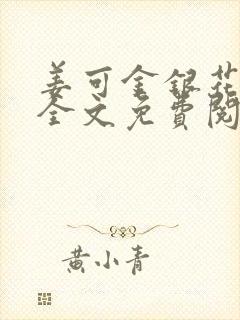 姜可金银花
全文免费阅
黄小青